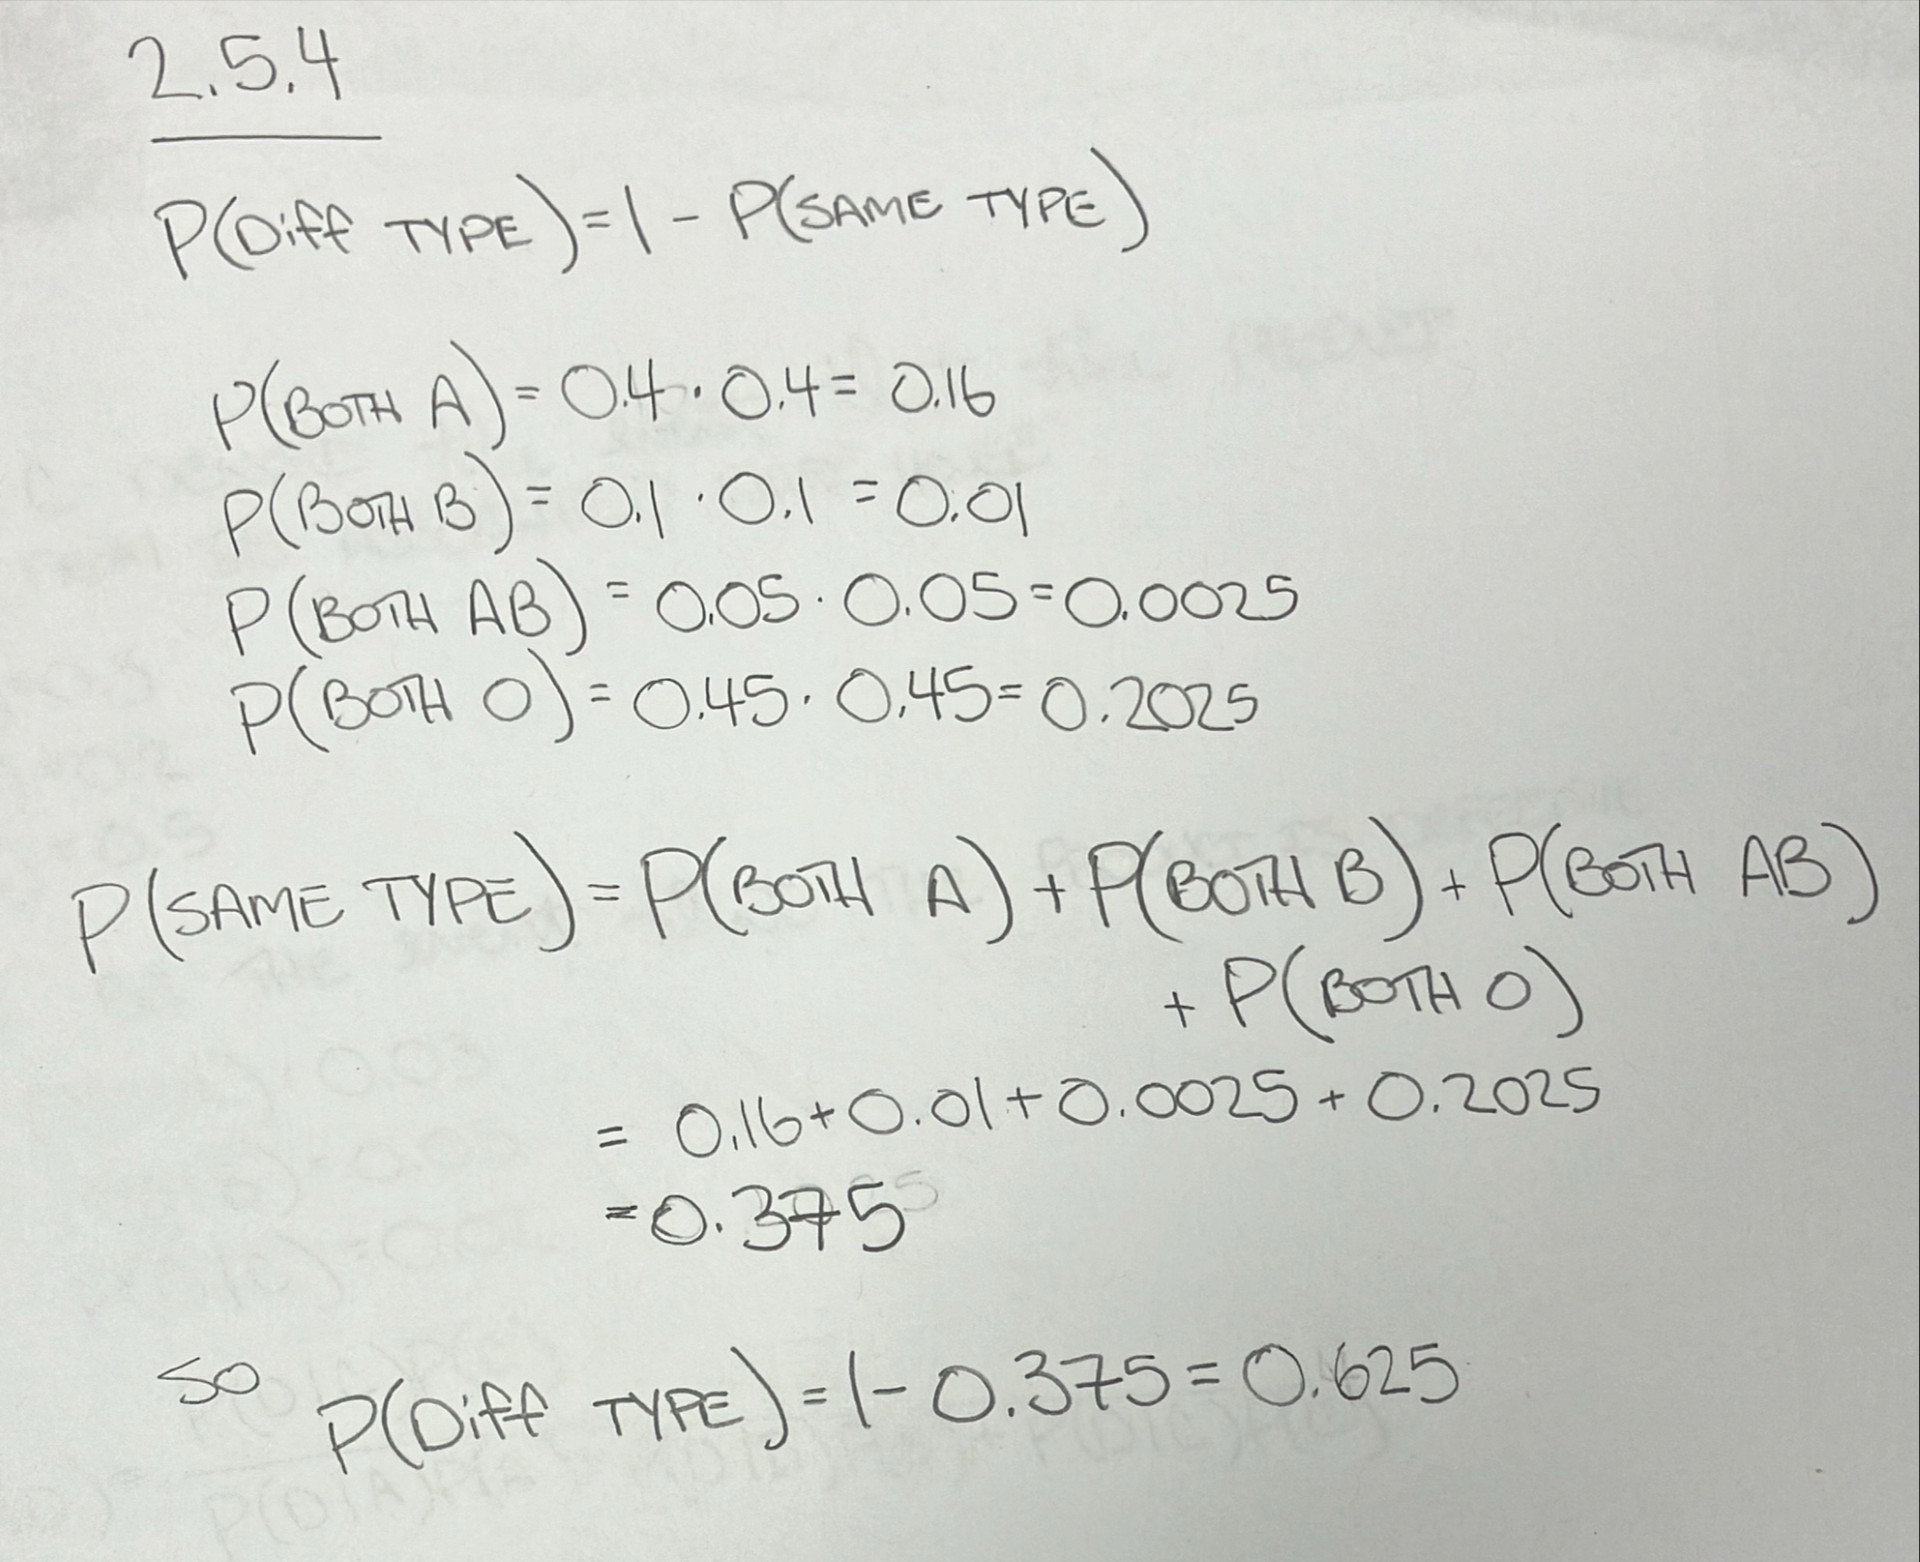 2.5.4
P(Diff TYPE) = 1 - P(SAME TYPE)
P(BOTH A) = 0.4 · 0.4 = 0.16
P(BOTH B) = 0.1 · 0.1 = 0.01
P(BOTH AB) = 0.05 · 0.05 = 0.0025
P(BOTH O) = 0.45 · 0.45 = 0.2025
P(SAME TYPE) = P(BOTH A) + P(BOTH B) + P(BOTH AB)
+ P(BOTH O)
= 0.16 + 0.01 + 0.0025 + 0.2025
= 0.375
SO P(Diff TYPE) = 1 - 0.375 = 0.625